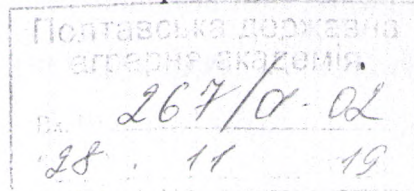 Полтавська державна
аграрна академія
Вх. № 267/01-02
28 . 11 19